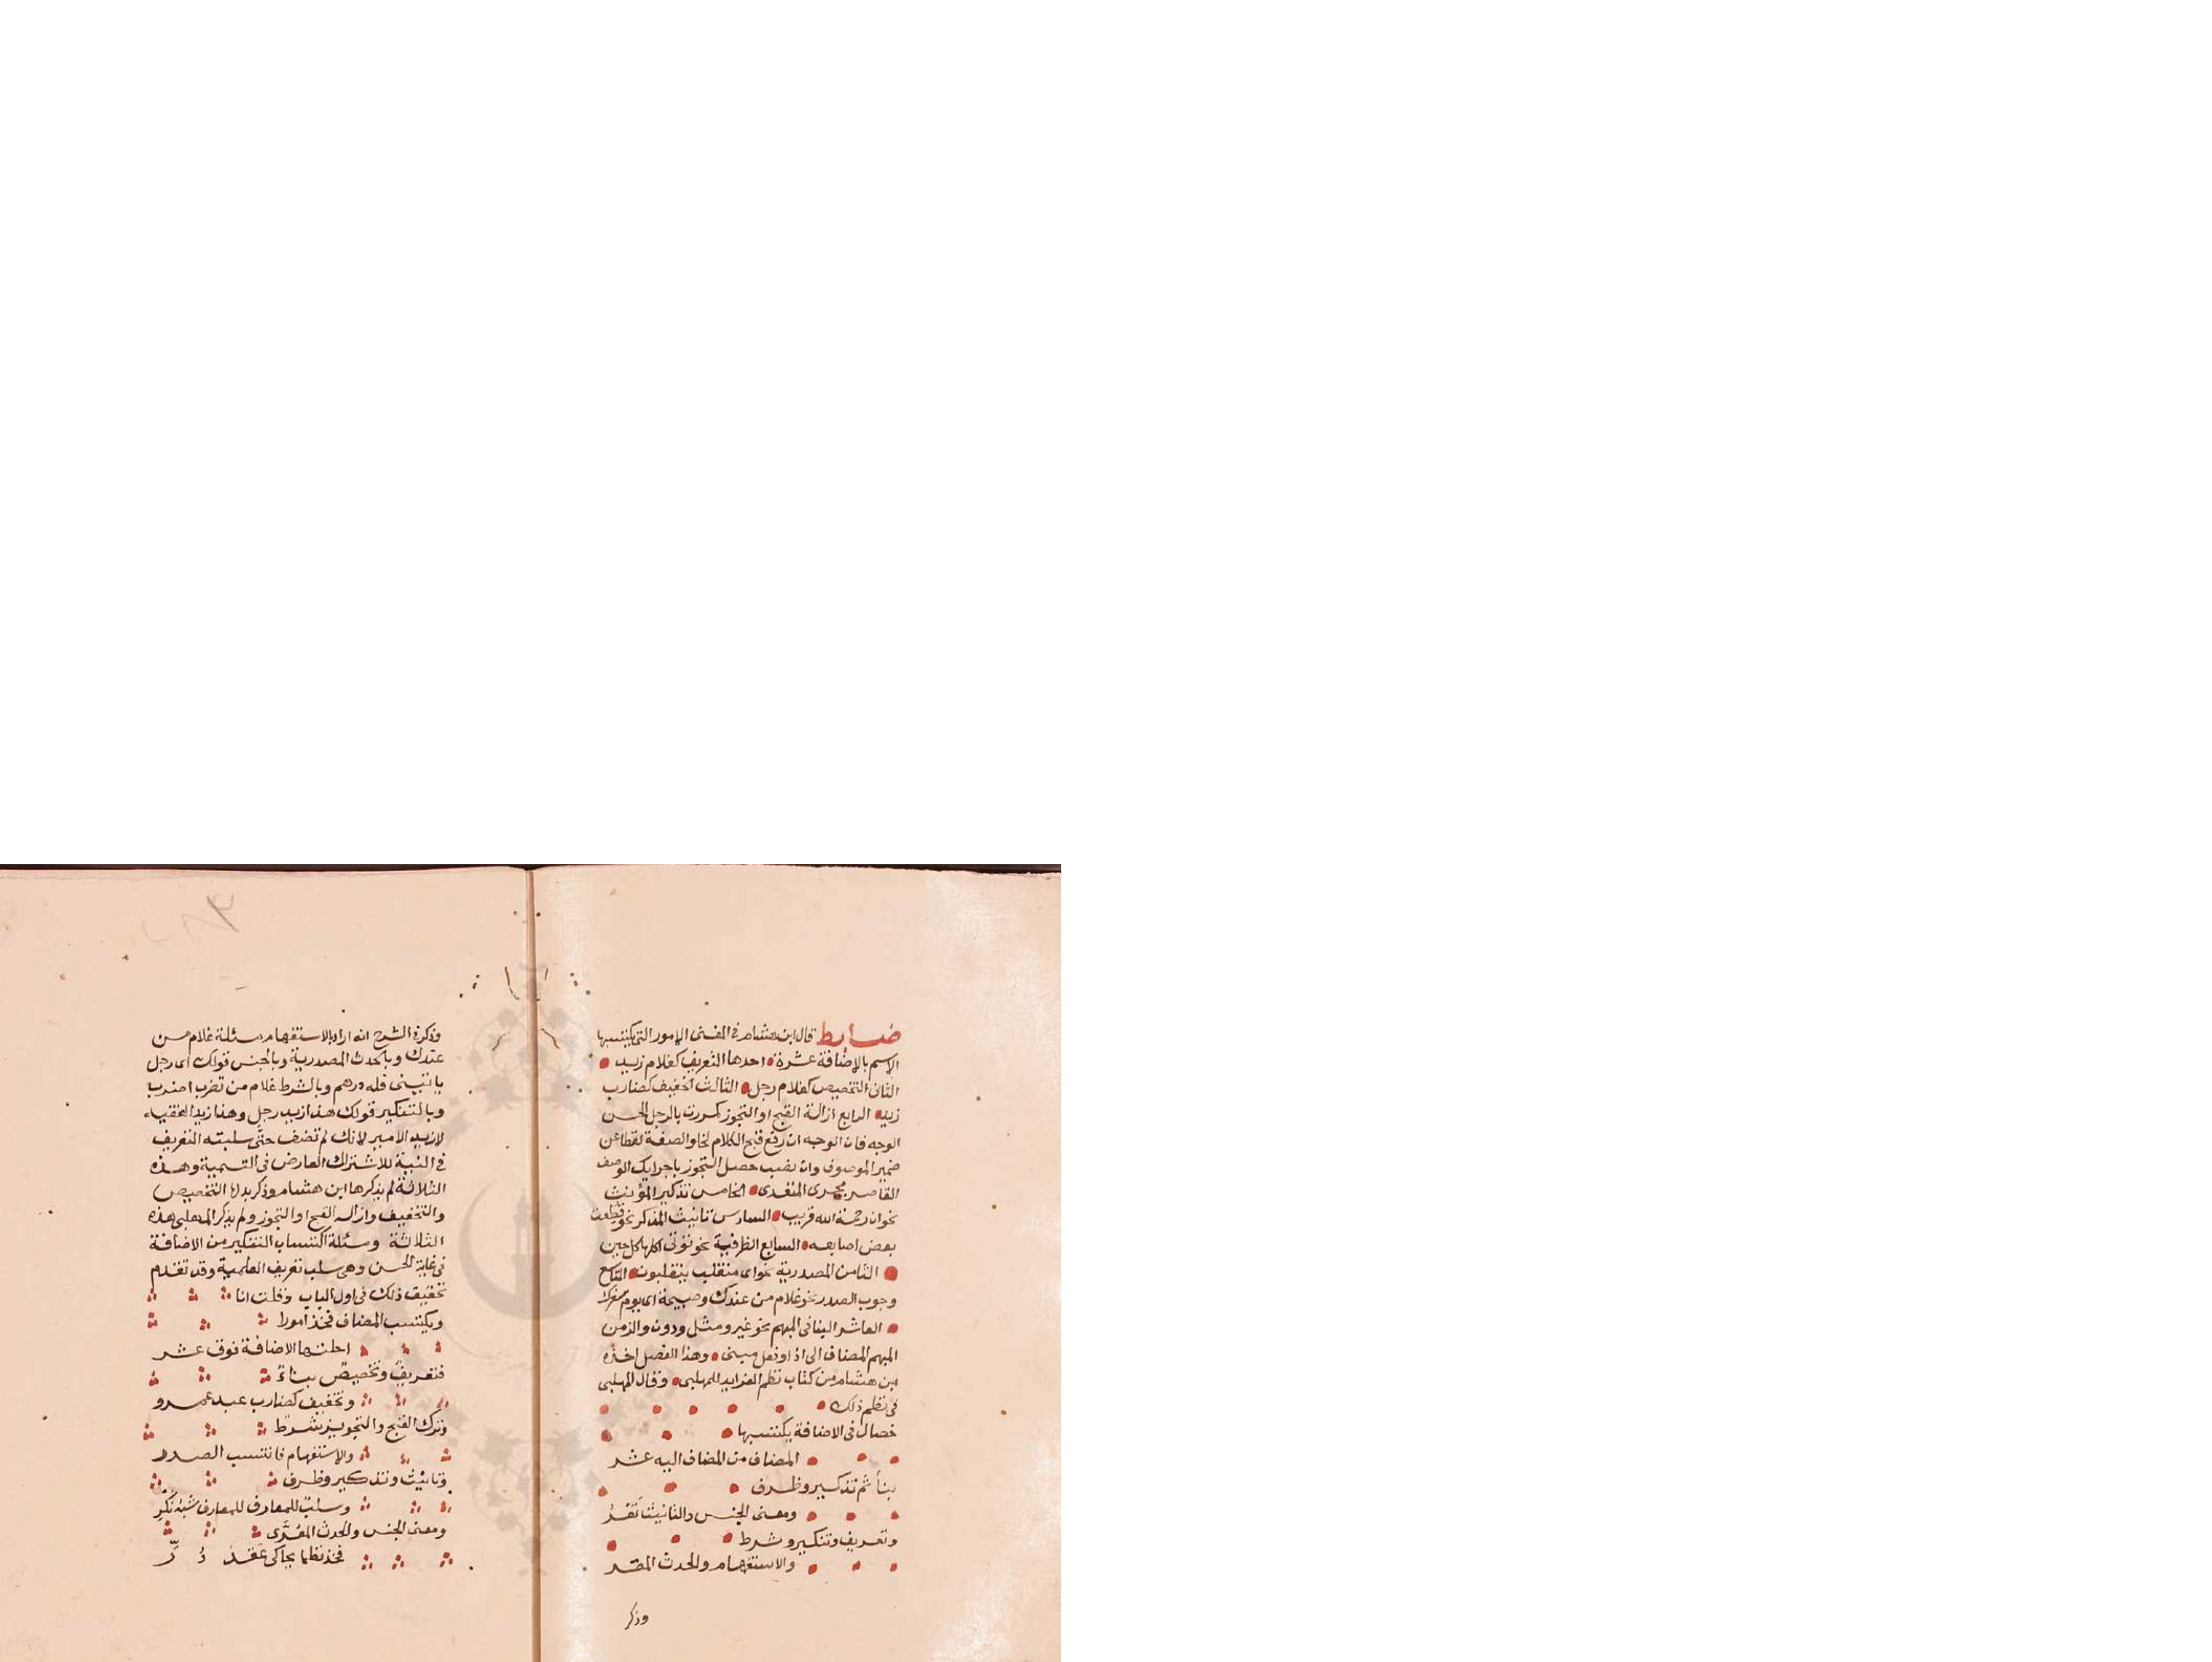 ضابط قال ابن هشام في المغني الامور التي يكتسبها
الاسم بالاضافة عشرة احدها التعريف كغلام زيد
الثاني التخصيص كغلام رجل الثالث التخفيف كضارب
زيد الرابع ازالة القبح او التجوز كمررت بالرجل الحسن
الوجه فان الوجه ان رفع قبح الكلام لخلو الصفة لفظا عن
ضمير الموصوف وان نصب حصل التجوز باجرايك الوصف
القاصر مجرى المتعدي الخامس تذكير المؤنث
نحو ان رحمة الله قريب السادس تانيث المذكر نحو قطعت
بعض اصابعه السابع الظرفية نحو تؤتي اكلها كل حين
الثامن المصدرية نحو اي منقلب ينقلبون التاسع
وجوب الصدر نحو غلام من عندك وصبيحة اي يوم سفرك
العاشر البنا في المبهم نحو غير ومثل ودون والزمن
المبهم المضاف الى اذ او فعل مبني وهذا الفصل اخذه
ابن هشام من كتاب نظم الفرايد للمهلبي وقال المهلبي
في نظم ذلك
خصال في الاضافة يكتسبها
المضاف من المضاف اليه عشر
بنا ثم تذكير وظرف
ومعنى الجنس والتانيث تقر
وتعريف وتنكير وشرط
والاستفهام والحدث المقر
وذكر
وذكر في الشرح انه اراد بالاستفهام مسئلة غلام من
عندك وبالحدث المصدرية وبالجنس قولك اي رجل
ياتيني فله درهم وبالشرط غلام من تضرب اضرب
وبالتنكير قولك هذا زيد رجل وهذا زيد الفقيه
لا زيد الامير لانك لم تضف حتى سلبته التعريف
في النية للاشتراك العارض في التسمية وهذه
الثلاثة لم يذكرها ابن هشام وذكر بدلها التخصيص
والتخفيف وازالة القبح او التجوز ولم يذكر المهلبي هذه
الثلاثة ومسئلة اكتساب التنكير من الاضافة
في غاية الحسن وهي سلب تعريف العلمية وقد تقدم
تحقيق ذلك في اول الباب وقلت انا
ويكتسب المضاف فخذ امورا
احلتها الاضافة فوق عشر
فتعريف وتخصيص بناء
وتخفيف كضارب عبد عمرو
وترك القبح والتجويز شرط
والاستفهام فانتسب الصدر
وتانيث وتذكير وظرف
وسلب للمعارف شبه نكر
ومعنى الجنس والحدث المعرى
فخذ نظما يحاكي عقد در